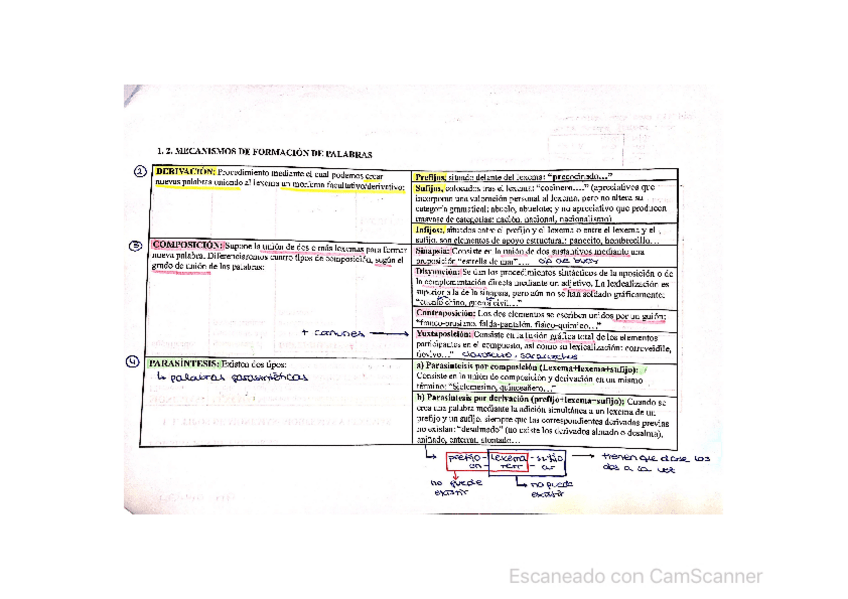 1. 2. MECANISMOS DE FORMACIÓN DE PALABRAS
2
DERIVACIÓN: Procedimiento mediante el cual podemos crear
nuevas palabra uniendo al lexema un morfema facultativo/derivativo:
Prefijos, situado delante del lexema: "precocinado..."
Sufijos, colocados tras el lexema: "cocinero...." (apreciativos que
incorporan una valoración personal al lexema, pero no altera su
categoría gramatical: abuelo, abuelote; y no apreciativo que producen
de categorías: nación, nacional, nacionalismo)
Infijos: situados entre el prefijo y el lexema o entre el lexema y el
sufijo, son elementos de apoyo estructura.: panecito, hombrecillo...
3
COMPOSICIÓN: Supone la unión de dos o más lexemas para formar
nueva palabra. Diferenciaremos cuatro tipos de composición, según el
grado de unión de las palabras:
Sinapsia: Consiste en la unión de dos sustantivos mediante una
preposición "estrella de mar".... ojo de buey
Disyunción: Se dan los procedimientos sintácticos de la aposición o de
la complementación directa mediante un adjetivo. La lexicalización es
superior a la de la sinapsia, pero aún no se han soldado gráficamente:
civil..."
Contraposición: Los dos elementos se escriben unidos por un guión:
falda-pantalón, físico-químico..."
+ comunes
Yuxtaposición: Consiste en la fusión gráfica total de los elementos
participantes en el compuesto, así como su lexicalización: correveidile,
4
PARASÍNTESIS: Existen dos tipos:
↳ palabras parasintéticas
a) Parasíntesis por composición (Lexema+lexema+sufijo):
Consiste en la unión de composición y derivación en un mismo
término: "Sietemesino, quinceañero..."
b) Parasíntesis por derivación (prefijo+lexema+sufijo): Cuando se
crea una palabra mediante la adición simultánea a un lexema de un
prefijo y un sufijo, siempre que las correspondientes derivadas previas
no existan: "desalmado" (no existe los derivados almado o desalma),
anidado, enterrar,
prefijo - lexema - sufijo → tienen que darse los
en - terr - ar dos a la vez
no puede no puede
existir existir
Escaneado con CamScanner